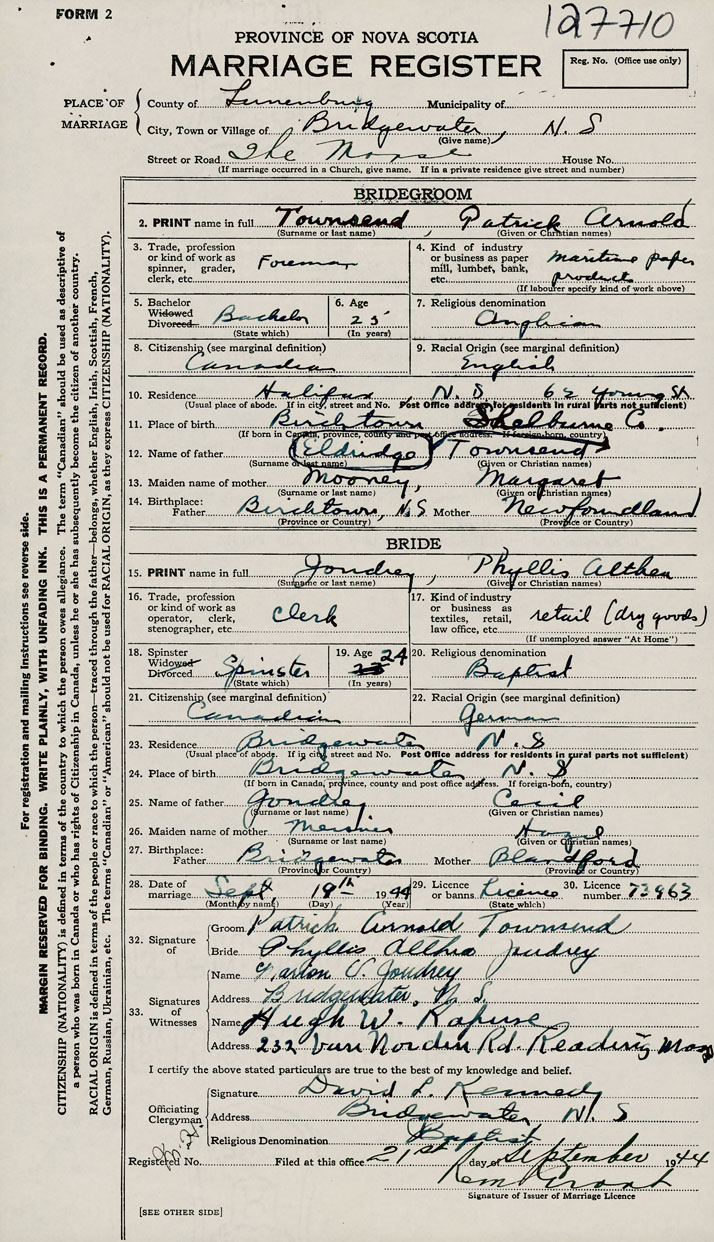 FORM 2
127710
PROVINCE OF NOVA SCOTIA
MARRIAGE REGISTER
Reg. No. (Office use only)
PLACE OF MARRIAGE
County of Lunenburg Municipality of
City, Town or Village of Bridgewater, N. S
(Give name)
Street or Road The Manse House No.
(If marriage occurred in a Church, give name. If in a private residence give street and number)
BRIDEGROOM
2. PRINT name in full Townsend, Patrick Arnold
(Surname or last name) (Given or Christian names)
3. Trade, profession or kind of work as spinner, grader, clerk, etc. Foreman
4. Kind of industry or business as paper mill, lumber, bank, etc. maritime paper products
(If labourer specify kind of work above)
5. Bachelor Widowed Divorced Bachelor
(State which)
6. Age 25
(In years)
7. Religious denomination Anglican
8. Citizenship (see marginal definition) Canadian
9. Racial Origin (see marginal definition) English
10. Residence Halifax, N. S 62 Young St
(Usual place of abode. If in city, street and No. Post Office address for residents in rural parts not sufficient)
11. Place of birth Birchtown Shelburne Co.
(If born in Canada, province, county and post office address. If foreign-born, country)
12. Name of father Eldridge Townsend
(Surname or last name) (Given or Christian names)
13. Maiden name of mother Mooney, Margaret
(Surname or last name) (Given or Christian names)
14. Birthplace: Father Birchtown, N.S Mother Newfoundland
(Province or Country) (Province or Country)
BRIDE
15. PRINT name in full Joudrey, Phyllis Althea
(Surname or last name) (Given or Christian names)
16. Trade, profession or kind of work as operator, clerk, stenographer, etc. Clerk
17. Kind of industry or business as textiles, retail, law office, etc. retail (dry goods)
(If unemployed answer "At Home")
18. Spinster Widowed Divorced Spinster
(State which)
19. Age 24
(In years)
20. Religious denomination Baptist
21. Citizenship (see marginal definition) Canadian
22. Racial Origin (see marginal definition) German
23. Residence Bridgewater N. S
(Usual place of abode. If in city, street and No. Post Office address for residents in rural parts not sufficient)
24. Place of birth Bridgewater N. S
(If born in Canada, province, county and post office address. If foreign-born, country)
25. Name of father Joudrey Cecil
(Surname or last name) (Given or Christian names)
26. Maiden name of mother Meisner Hazel
(Surname or last name) (Given or Christian names)
27. Birthplace: Father Bridgewater Mother Blandford
(Province or Country) (Province or Country)
28. Date of marriage Sept 19th 1944
(Month by name) (Day) (Year)
29. Licence or banns Licence
(State which)
30. Licence number 73963
32. Signature of
Groom Patrick Arnold Townsend
Bride Phyllis Althea Joudrey
33. Signatures of Witnesses
Name Joudrey
Address Bridgewater, N. S.
Name Hugh W.
Address 232 Van Norden Rd. Reading Mass
I certify the above stated particulars are true to the best of my knowledge and belief.
Officiating Clergyman
Signature David L. Kennedy
Address Bridgewater N. S
Religious Denomination Baptist
Registered No. Filed at this office 21st day of September 1944
Signature of Issuer of Marriage Licence
[SEE OTHER SIDE]
For registration and mailing instructions see reverse side.
MARGIN RESERVED FOR BINDING. WRITE PLAINLY, WITH UNFADING INK. THIS IS A PERMANENT RECORD.
CITIZENSHIP (NATIONALITY) is defined in terms of the country to which the person owes allegiance. The term "Canadian" should be used as descriptive of
a person who was born in Canada or who has rights of Citizenship in Canada, unless he or she has subsequently become the citizen of another country.
RACIAL ORIGIN is defined in terms of the people or race to which the person—traced through the father—belongs, whether English, Irish, Scottish, French,
German, Russian, Ukrainian, etc. The terms "Canadian" or "American" should not be used for RACIAL ORIGIN, as they express CITIZENSHIP (NATIONALITY).